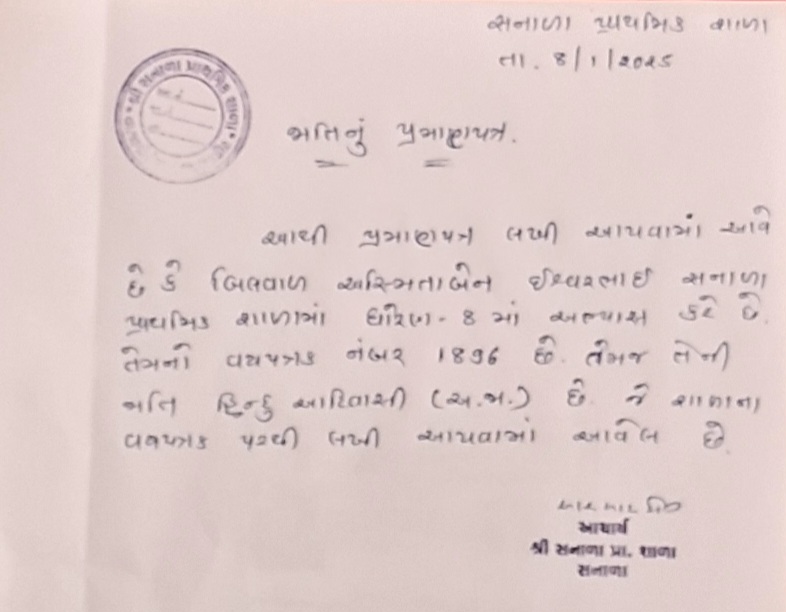 સનાળા પ્રાથમિક શાળા
તા. 8/1/2025
શ્રી સનાળા પ્રાથમિક શાળા
જાતિનું પ્રમાણપત્ર.
આથી પ્રમાણપત્ર લખી આપવામાં આવે
છે કે બિલવાળ અસ્મિતાબેન ઈશ્વરભાઈ સનાળા
પ્રાથમિક શાળામાં ધોરણ - 8 માં અભ્યાસ કરે છે.
તેમનો વયપત્રક નંબર 1896 છે. તેમજ તેની
જાતિ હિન્દુ આદિવાસી (અ.જ.) છે. જે શાળાના
વયપત્રક પરથી લખી આપવામાં આવેલ છે.
આચાર્ય
શ્રી સનાળા પ્રા. શાળા
સનાળા